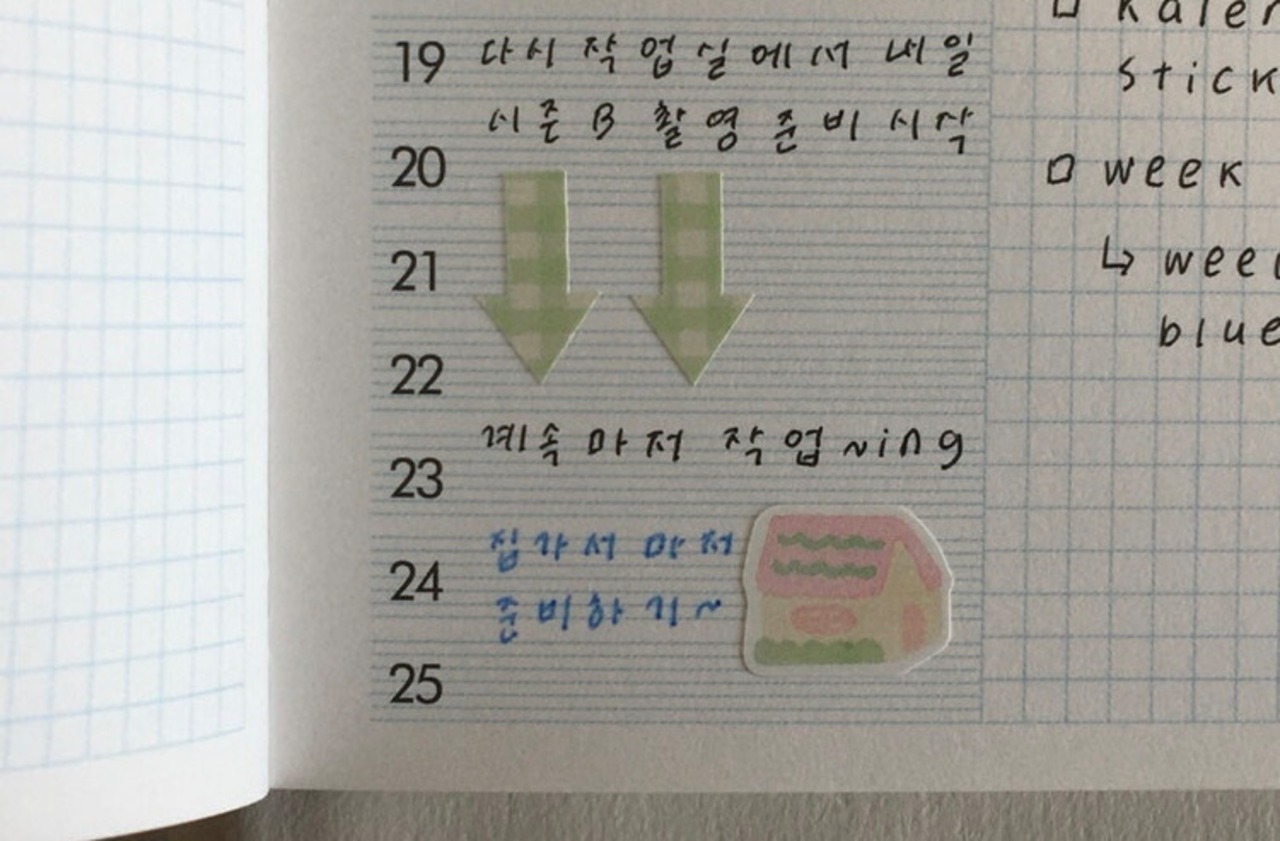 19 다시 작업실에서 내일
시즌 B 촬영 준비 시작
20
21
22
계속 마저 작업 ~ing
23
집가서 마저
24
준비하기~
25
stick
□ week
↳ wee
blue